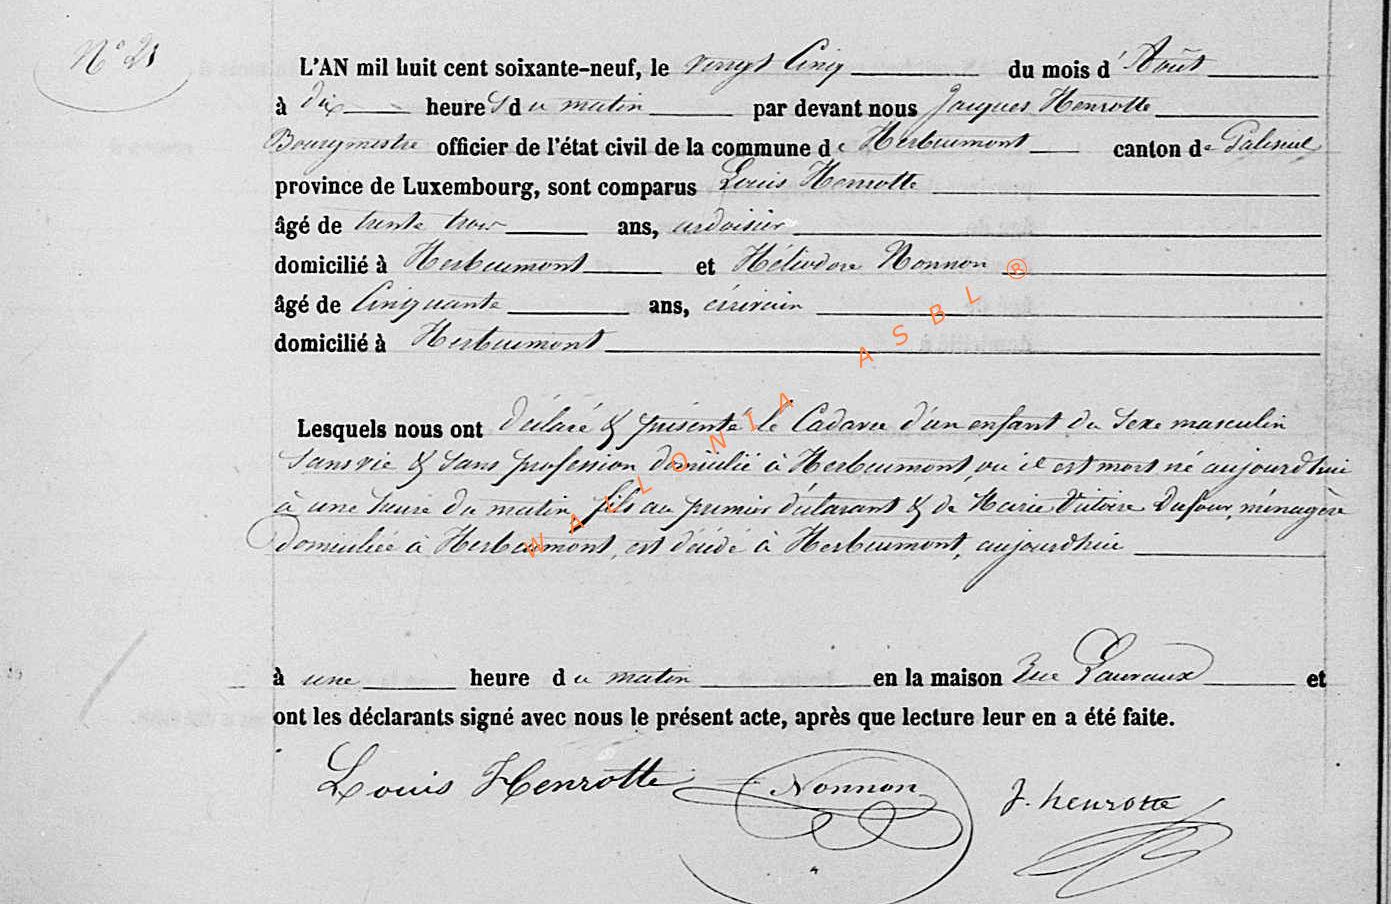 N° 21
L'AN mil huit cent soixante-neuf, le vingt Cinq du mois d'Août
à dix heures du matin par devant nous Jacques Henrotte
Bourgmestre officier de l'état civil de la commune de Herbeumont canton de Paliseul
province de Luxembourg, sont comparus Louis Henrotte
âgé de trente trois ans, ardoisier
domicilié à Herbeumont et Héliodore Nonnon
âgé de Cinquante ans, écrivain
domicilié à Herbeumont
Lesquels nous ont déclaré & présenté le Cadavre d'un enfant du sexe masculin
sans vie & sans profession domicilié à Herbeumont, où il est mort né aujourd'hui
à une heure du matin, fils au premier déclarant & de Marie Victoire Dufour, ménagère
domiciliée à Herbeumont, est décédé à Herbeumont, aujourd'hui
à une heure du matin en la maison Rue Lauvaux et
ont les déclarants signé avec nous le présent acte, après que lecture leur en a été faite.
Louis Henrotte Nonnon J. henrotte
WALLONIA ASBL ®